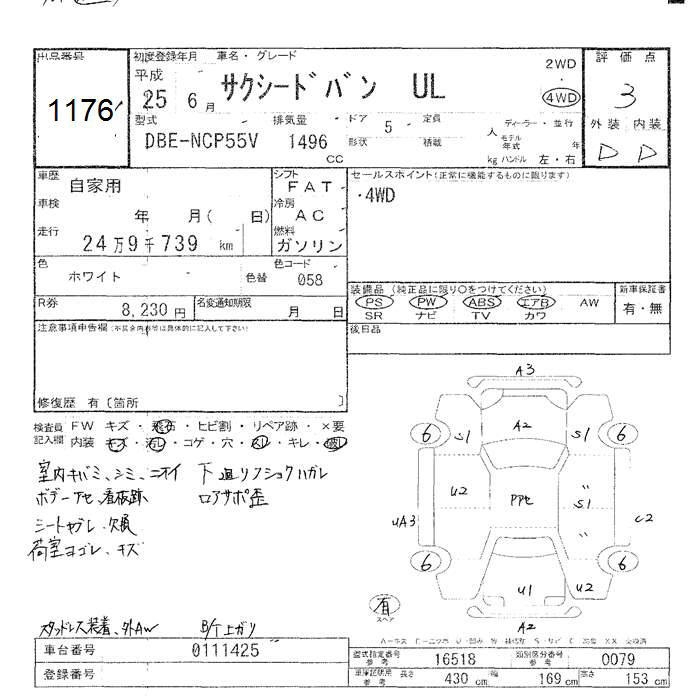 出品番号 初度登録年月 車名・グレード 評価点
1176
平成 25 6月 サクシードバン UL 2WD ・ 4WD 3
型式 排気量 ドア 5 定員 人 ディーラー・並行
DBE-NCP55V 1496 CC 形状 積載 kg モデル年式 年 ハンドル 左・右
外装 内装
D D
車歴 自家用 シフト FAT セールスポイント(正常に機能するものに限ります)
車検 年 月( 日) 冷房 AC ・4WD
走行 24万9千739 km 燃料 ガソリン
色 ホワイト 色替 色コード 058
装備品(純正品に限り○をつけてください) 新車保証書
PS PW ABS エアB AW 有・無
SR ナビ TV カワ
R券 8,230円 名変通知期限 月 日
後日品
注意事項申告欄(不具合内容等は具体的に記入して下さい)
修復歴 有〔箇所 〕
検査員記入欄 FW キズ・飛石・ヒビ割・リペア跡・×要
内装 キズ・汚レ・コゲ・穴・スレ・キレ・破レ
室内キバミ、シミ、ニオイ 下廻リ ハガレ
ボデーアセ、看板跡 ロアサポ歪
シートヤブレ、欠損
荷室ヨゴレ、キズ
A3
6 S1 A2 S1 6
U2 PPセ S1
UA3 〃 C2
6 U1 U2 6
有 スペア
A2
スタッドレス装着、外AW B/T上ガリ
車台番号 0111425
登録番号
型式指定番号 参考 16518 類別区分番号 参考 0079
車庫証明用 参考 長さ 430 cm 幅 169 cm 高さ 153 cm